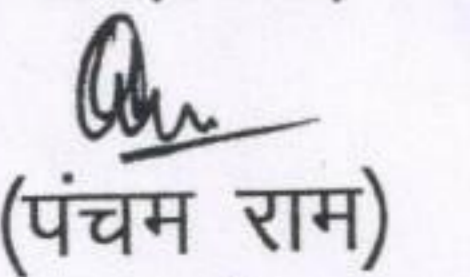 (पंचम राम)